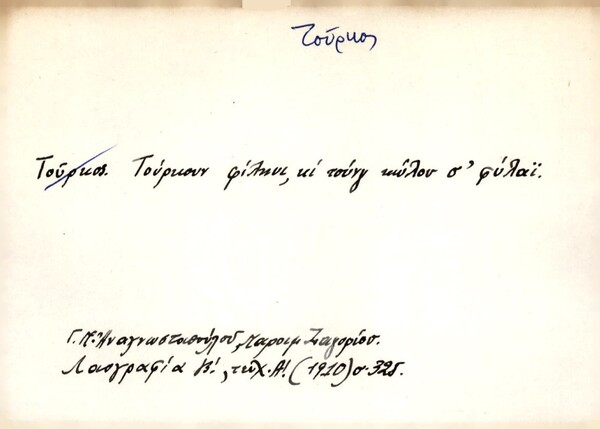 Τούρκος
Τοῦρκος. Τούρκουν φίληνι, κὶ τοὺνγ κῶλου σ' φύλαϊ.
Γ. Ν. Ἀναγνωστοπούλου, Παροιμ. Ζαγορίου.
Λαογραφία Β!, τεῦχ. Α! (1910) σ. 325.